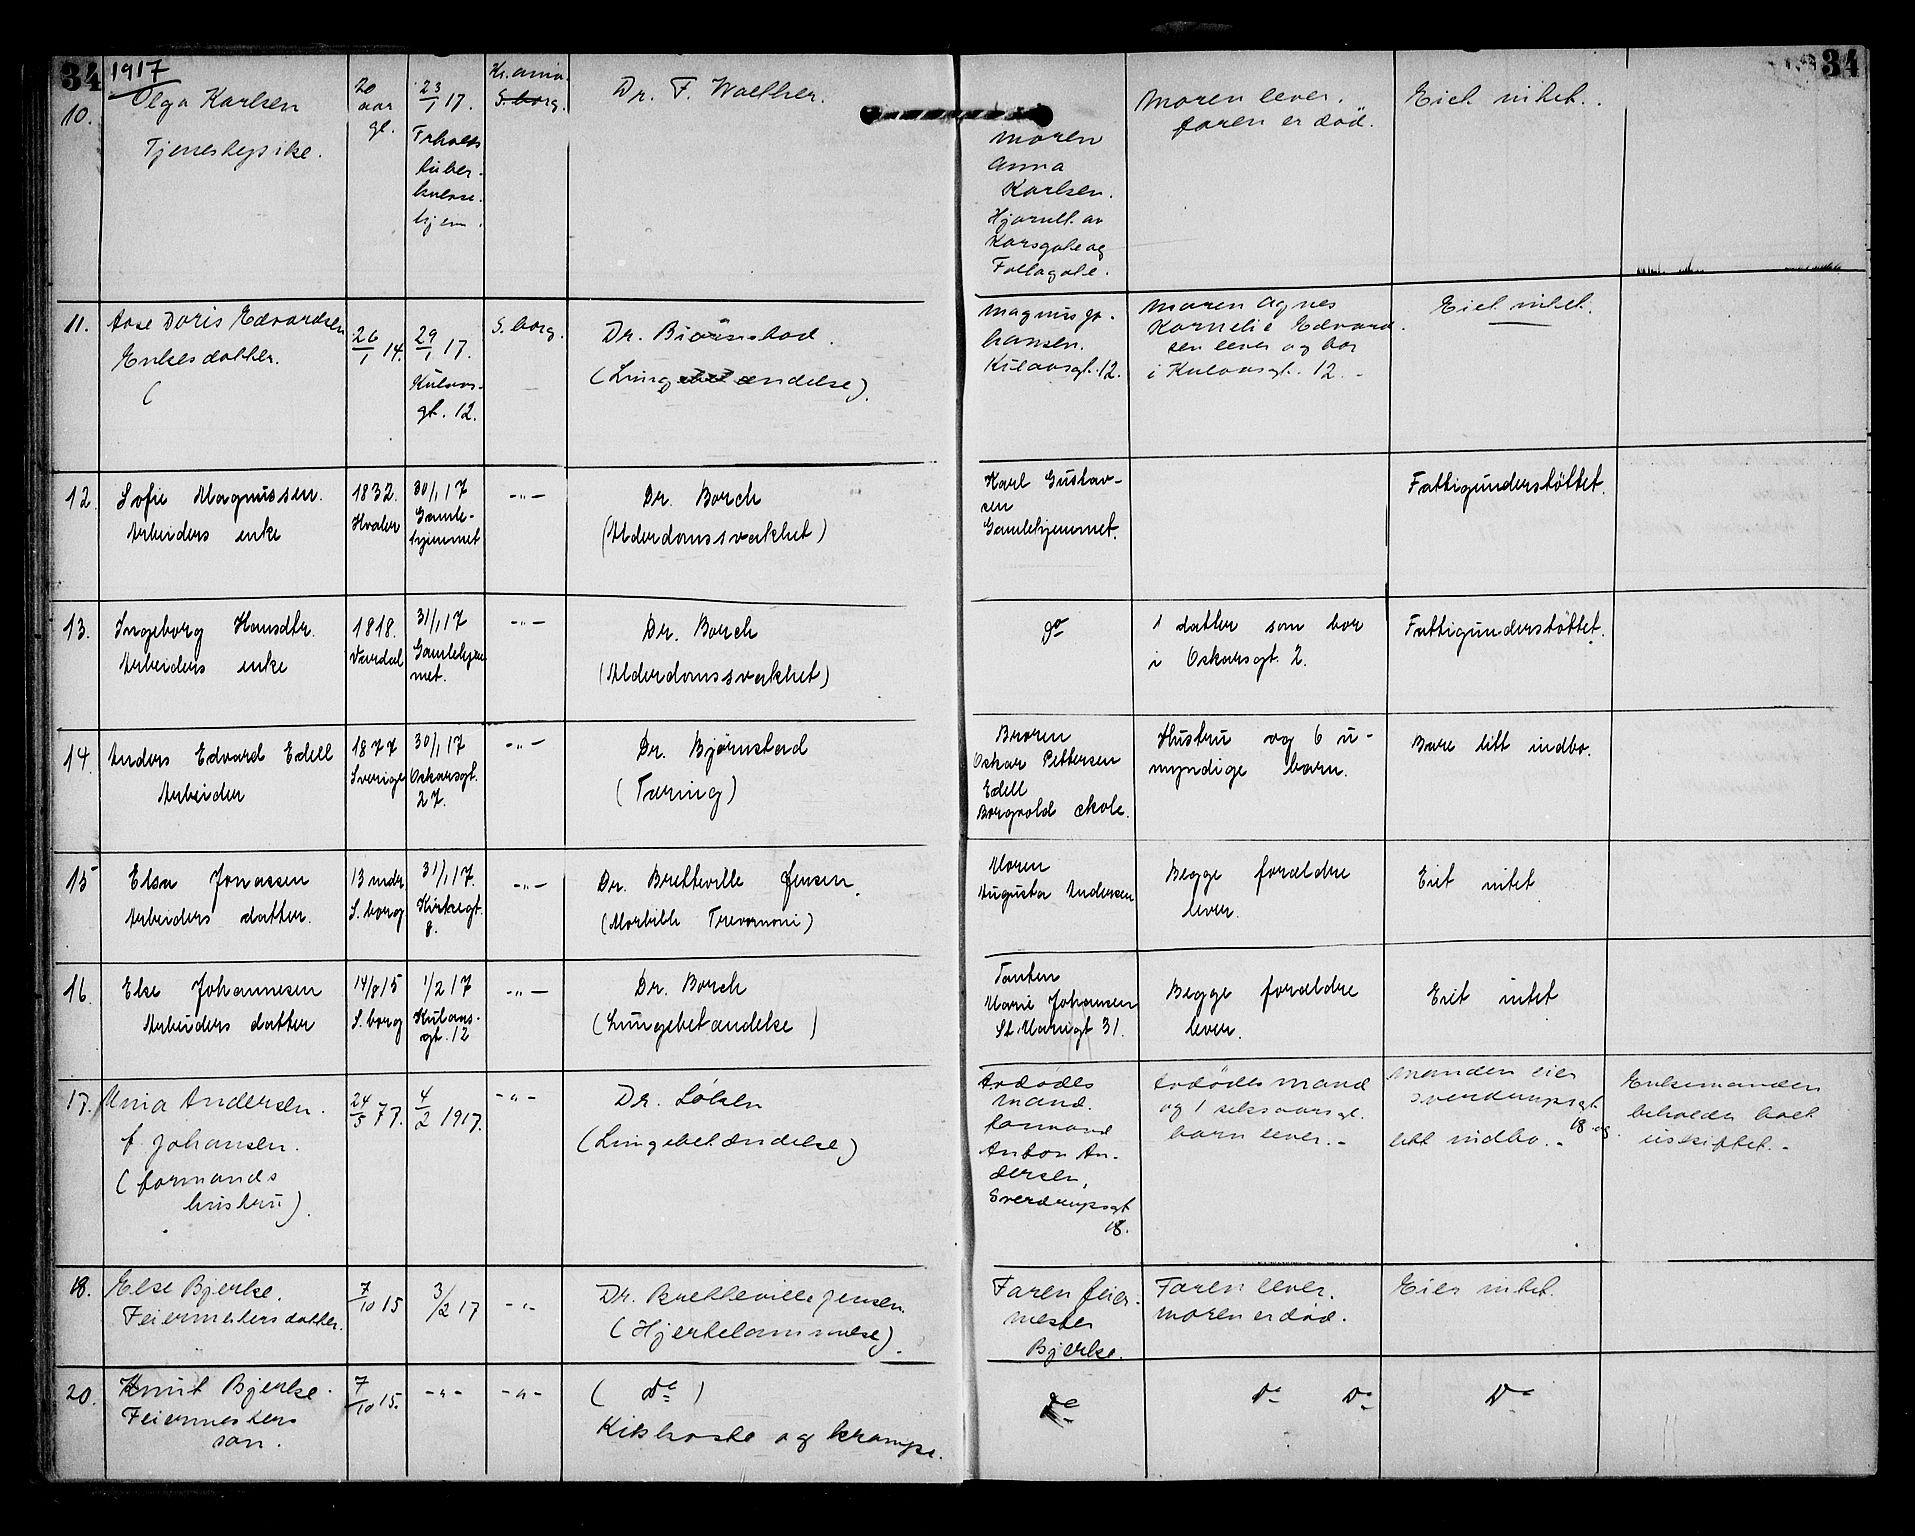 34
1917
34
10.
Olga Karlsen
Tjenestepike.
20
aar
gl.
23/1 17.
tuber-
hjem.
Kr.ania.
S.borg.
Dr. F. Walther.
Moren
Anna
Karlsen.
Hjørnet av
Korsgate og
Moren lever.
faren er död.
Eiet intet.
11.
Aase Doris Edvardsen
Enkesdatter.
(
26/1 14.
29/1 17.
Kulaas-
gt. 12.
S. borg.
Dr. Biörnstad.
(Lunge ændelse).
Magnus Jo-
hansen.
Kulaasgt. 12.
Moren Agnes
Kornelie Edvard-
sen lever og bor
i Kulaasgt. 12. -
Eiet intet.
12.
Sofie Magnussen.
Arbeiders enke
1832.
Hvaler
30/1 17
Gamle-
hjemmet
-"-
Dr. Borch
(Alderdomssvakhet)
Karl Gustav-
sen
Gamlehjemmet.
Fattigunderstöttet.
13.
Ingeborg Hansdtr.
Arbeiders enke
1818.
Vardal
31/1 17
Gamlehjem-
met.
-"-
Dr. Borch
(Alderdomssvakhet)
do
1 datter som bor
i Oskarsgt. 2.
Fattigunderstöttet.
14.
Anders Edvard Edell
Arbeider
1877
Sverige
30/1 17
Oskarsgt.
27.
-"-
Dr. Bjørnstad
(Tæring)
Broren
Oskar Pettersen
Edell
Borgvold skole.
Hustru og 6 u-
myndige barn.
Bare litt indbo.
15
Elsa Jonassen
Arbeiders datter.
13 mdr
S. borg
31/1 17.
Kirkegt.
8.
-"-
Dr. Bretteville Jensen.
Moren
Augusta Andersen
Begge forældre
lever.
Eiet intet
16.
Else Johannesen
Arbeiders datter
14/8 15
S. borg
1/2 17
Kulaas-
gt. 12
-"-
Dr. Borch
(Lungebetændelse)
Tanten
Marie Johansen
St. Marigt 31.
Begge forældre
lever.
Eiet intet
17.
Andersen.
f. Johansen.
(formands
hustru).
24/3 77.
4/2 1917.
-"-
Dr. Lölsen
(Lungebetændelse)
Avdödes
mand.
formand
Anton An-
dersen,
Sverdrupsgt
18.
Avdödes mand
og 1 seksaarigt
barn lever. -
Manden eier
Sverdrupsgt
18 og
litt indbo. -
Enkemanden
beholder boet
uskiftet. -
18.
Else Bjerke.
Feiermesters datter.
7/10 15
3/2 17
-"-
Dr. Bretteville Jensen.
(Hjertelammelse).
Faren feier-
mester
Bjerke.
Faren lever.
Moren er död.
Eier intet.
20.
Knut Bjerke.
Feiermesters
søn.
7/10 15.
-"-
-"-
( do )
Kikhoste og krampe.
do
do do
do